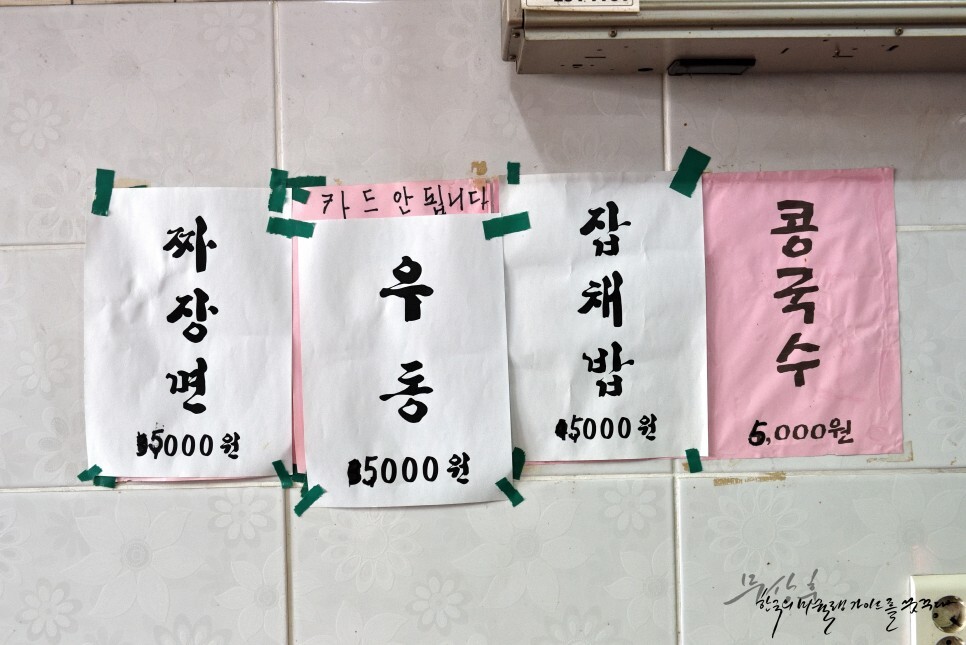 짜장면
5000원
카드안됩니다
우동
5000원
잡채밥
5000원
콩국수
5,000원
한국의 미슐랭 가이드를 꿈꾸다